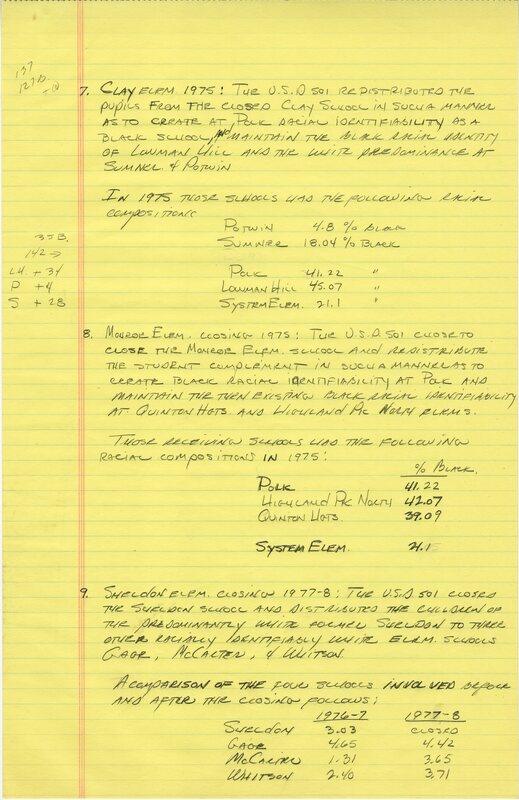 137
7. CLAY ELEM. 1975: THE U.S.D 501 REDISTRIBUTED THE
PUPILS FROM THE CLOSED CLAY SCHOOL IN SUCH A MANNER
AS TO CREATE AT POLK RACIAL IDENTIFIABILITY AS A
BLACK SCHOOL, AND MAINTAIN THE BLACK RACIAL IDENTITY
OF LOWMAN HILL AND THE WHITE PREDOMINANCE AT
SUMNER & POTWIN
IN 1975 THOSE SCHOOLS HAD THE FOLLOWING RACIAL
COMPOSITIONS
POTWIN 4.8 % BLACK
SUMNER 18.04 % BLACK
142 →
LH + 34
P + 4
S + 28
POLK 41.22 "
LOWMAN HILL 45.07 "
SYSTEM ELEM. 21.1 "
8. MONROE ELEM. CLOSING 1975: THE U.S.D. 501 CHOSE TO
CLOSE THE MONROE ELEM. SCHOOL AND REDISTRIBUTE
THE STUDENT COMPLEMENT IN SUCH A MANNER AS TO
CREATE BLACK RACIAL IDENTIFIABILITY AT POLK AND
MAINTAIN THE THEN EXISTING BLACK RACIAL IDENTIFIABILITY
AT QUINTON HGTS. AND HIGHLAND PK NORTH ELEMS.
THOSE RECEIVING SCHOOLS HAD THE FOLLOWING
RACIAL COMPOSITIONS IN 1975:
% BLACK.
POLK 41.22
HIGHLAND PK NORTH 42.07
QUINTON HGTS. 39.09
SYSTEM ELEM. 21.15
9. SHELDON ELEM. CLOSING 1977-8: THE U.S.D 501 CLOSED
THE SHELDON SCHOOL AND DISTRIBUTED THE CHILDREN OF
THE PREDOMINANTLY WHITE FORMER SHELDON TO THREE
OTHER RACIALLY IDENTIFIABLY WHITE ELEM. SCHOOLS
GAGE, MCCARTER, & WHITSON.
A COMPARISON OF THE FOUR SCHOOLS INVOLVED BEFORE
AND AFTER THE CLOSING FOLLOWS:
1976-7 1977-8
SHELDON 3.03 CLOSED
GAGE 4.65 4.42
MCCARTER 1.31 3.65
WHITSON 2.40 3.71